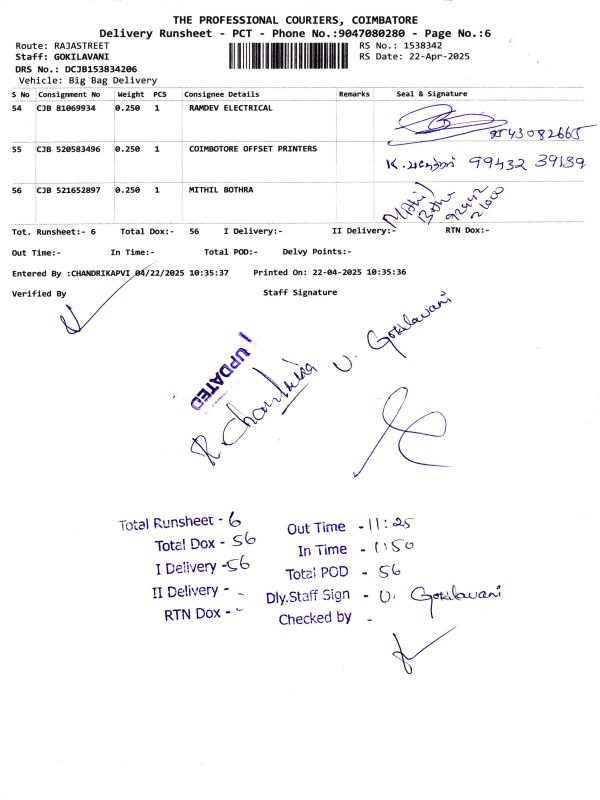 THE PROFESSIONAL COURIERS, COIMBATORE
Delivery Runsheet - PCT - Phone No.:9047080280 - Page No.:6
Route: RAJASTREET
RS No.: 1538342
Staff: GOKILAVANI
RS Date: 22-Apr-2025
DRS No.: DCJB153834206
Vehicle: Big Bag Delivery
S No Consignment No Weight PCS Consignee Details Remarks Seal & Signature
54 CJB 81069934 0.250 1 RAMDEV ELECTRICAL
9543082665
55 CJB 520583496 0.250 1 COIMBOTORE OFFSET PRINTERS
K. 99432 39139
56 CJB 521652897 0.250 1 MITHIL BOTHRA
Mithil
Bothra
92442
21000
Tot. Runsheet:- 6 Total Dox:- 56 I Delivery:- II Delivery:- RTN Dox:-
Out Time:- In Time:- Total POD:- Delvy Points:-
Entered By :CHANDRIKAPVI 04/22/2025 10:35:37 Printed On: 22-04-2025 10:35:36
Verified By Staff Signature
V. Gokilavani
I UPDATED
R. Chandrika
Total Runsheet - 6 Out Time - 11:25
Total Dox - 56 In Time - 1:50
I Delivery - 56 Total POD - 56
II Delivery - - Dly.Staff Sign - V. Gokilavani
RTN Dox - - Checked by -